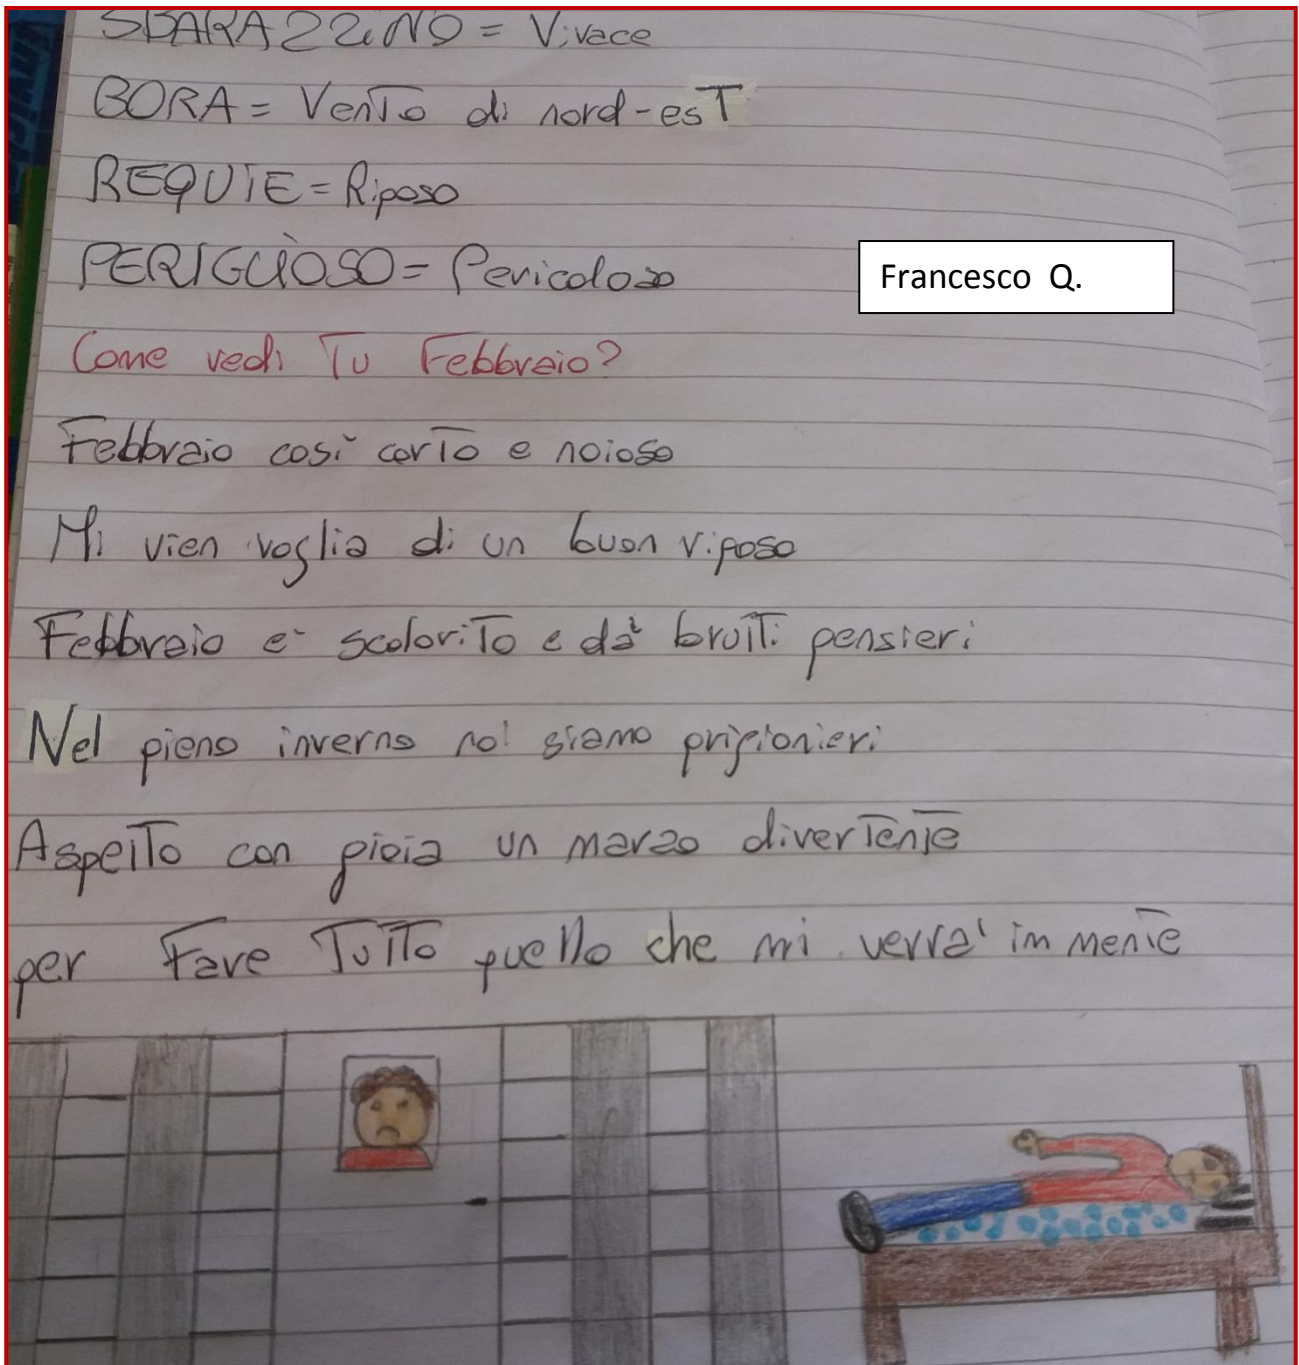 SBARAZZiNO = Vivace
BORA = Vento di nord-esT
REQUiE = Riposo
PERIGLiOSO = Pericoloso
Francesco Q.
Come vedi Tu Febbraio?
Febbraio così corTo e noioso
Mi vien voglia di un buon riposo
Febbraio è scoloriTo e dà bruTTi pensieri
Nel pieno inverno noi siamo prigionieri
AspeTTo con gioia un marzo diverTenTe
per Fare TuTTo quello che mi verrà im menTe